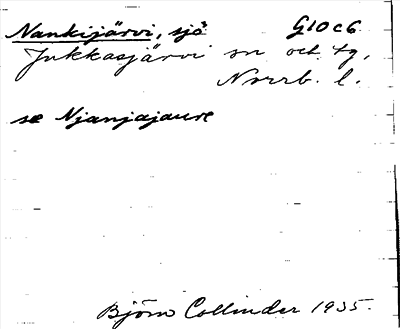 Nankijärvi, sjö G10c6
Jukkasjärvi sn och tg,
Norrb. l.
se Njanjajaure
Björn Collinder 1935.